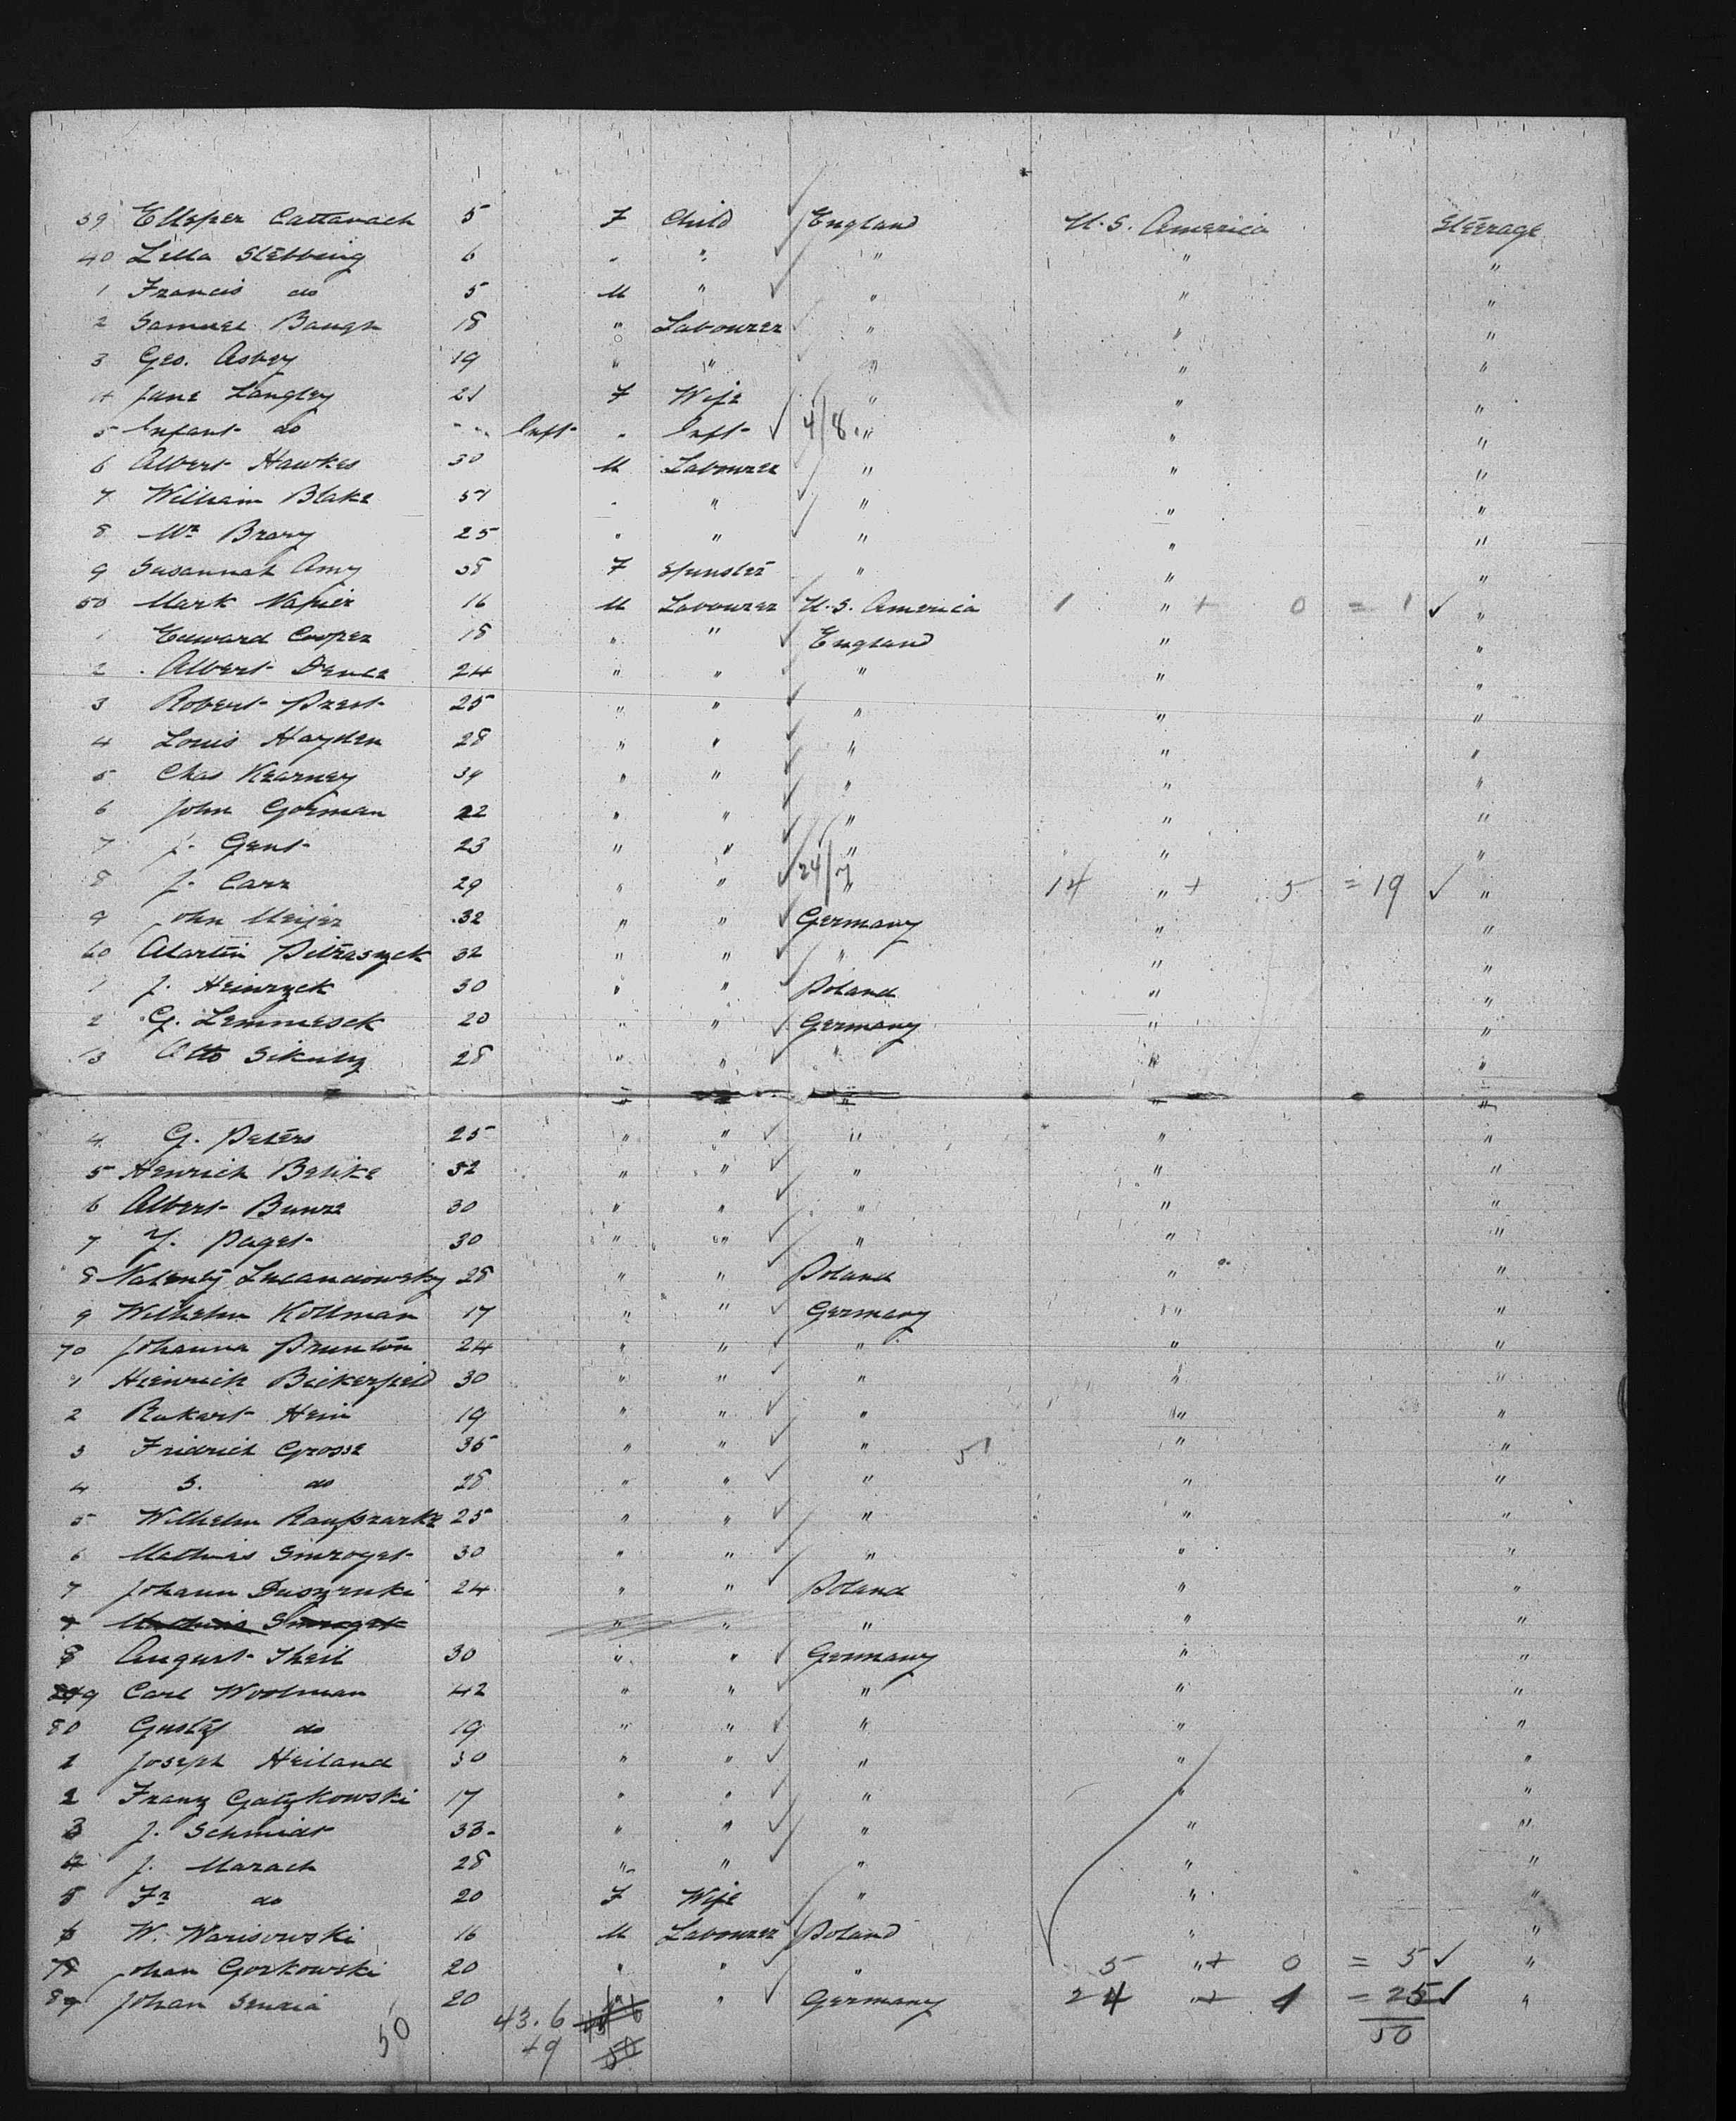 39 Ellsper Cattanach 5 F Child England U.S. America Steerage
40 Lella Stebbing 6 " " " " "
1 Francis do 5 M " " " "
2 Samuel Baugh 18 " Labourer " " "
3 Geo. Asbey 19 " " " " "
4 Jane Langley 21 F Wife " " "
5 Infant do Inft " Inft 4/8 " " "
6 Albert Hawkes 30 M Labourer " " "
7 William Blake 51 " " " " "
8 Wm Brary 25 " " " " "
9 Susannah Amy 38 F Spinster " " "
50 Mark Napier 16 M Labourer U.S. America 1 " + 0 = 1 "
1 Edward Cooper 18 " " England " "
2 Albert 24 " " " " "
3 Robert Prest 25 " " " " "
4 Louis Hayden 28 " " " " "
5 Chas Kearney 34 " " " " "
6 John Gorman 22 " " " " "
7 J. Gent 23 " " " " "
8 J. Carr 29 " " 24/7 " 14 " + 5 = 19 "
9 John Meijer 32 " " Germany " "
60 Martin Pitrasyck 32 " " " " "
1 J. Heinryck 30 " " Poland " "
2 G. Lemmesck 20 " " Germany " "
3 Otto Sikulz 28 " " " " "
" " " " "
4 G. Peters 25 " " " " "
5 Henrich Behke 32 " " " " "
6 Albert 30 " " " " "
7 Y. Paget 30 " " " " "
8 28 " " Poland " "
9 Wilhelm Kollman 17 " " Germany " "
70 Johanna Prunton 24 " " " " "
1 Hienrich Bickerfeld 30 " " " " "
2 Rukart Hein 19 " " " " "
3 Fridrich Grosse 35 " " " 51 " "
4 S. do 28 " " " " "
5 Wilhelm 25 " " " " "
6 Mathias Smroget 30 " " " " "
7 Johann Duszynski 24 " " Poland " "
7 Mathias Smroget " " " " "
8 August Theil 30 " " Germany " "
9 Carl Woolman 42 " " " " "
80 Gustaf do 19 " " " " "
1 Joseph Heiland 30 " " " " "
2 Franz Gatzkowski 17 " " " " "
3 J. Schmidt 33 " " " " "
4 J. Marach 28 " " " " "
5 Fr do 20 F Wife " " "
6 W. Warisowski 16 M Labourer Poland " "
7 Johan Gorkowski 20 " " " 5 " + 0 = 5 "
8 Johan 20 " " Germany 24 " + 1 = 25 "
50 43.6 50
49 50